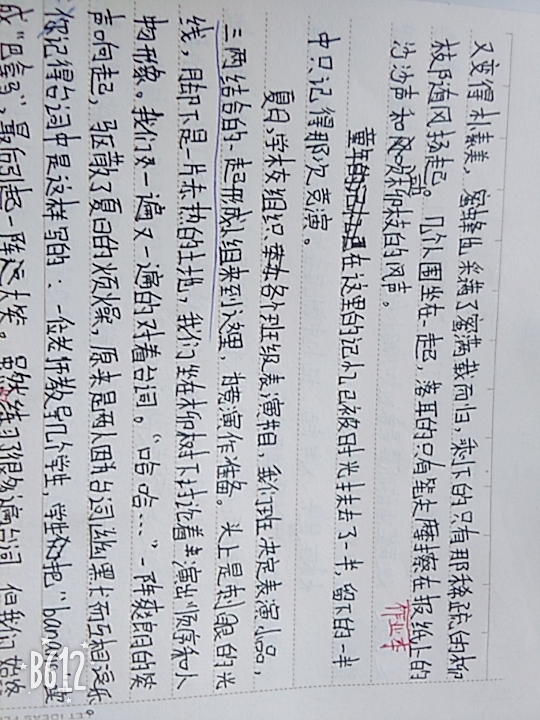 又变得朴素美，蜜蜂出采满了蜜满载而归，剩下的只有那稀疏的柳
枝随风扬起。几个人围坐在一起，落耳的只有笔尖摩擦在报纸上的
作业本
沙沙声和风吹柳枝的风声。
童年的在这里的记忆已被时光抹去了一半，留下的一半
中只记得那次竞演。
夏日，学校组织各个班级表演节目，我们班决定表演小品，
三两结合的一起形成小组来到这里，为竞演作准备。头上是刺眼的光
线，月却下是一片赤热的土地，我们坐在柳树下讨论着表演出顺序和人
物形象。我们又一遍又一遍的对着台词。“哈哈…”一阵爽朗的笑
声响起，驱散了夏日的烦燥，原来是两人因为台词幽默而互相逗乐
你记得台词中是这样写的：一位老师教导几个学生，学生们把“banana”读
成“巴拿马”，最后引起一阵大笑。虽然练习了很多遍台词，但我们始终
B612